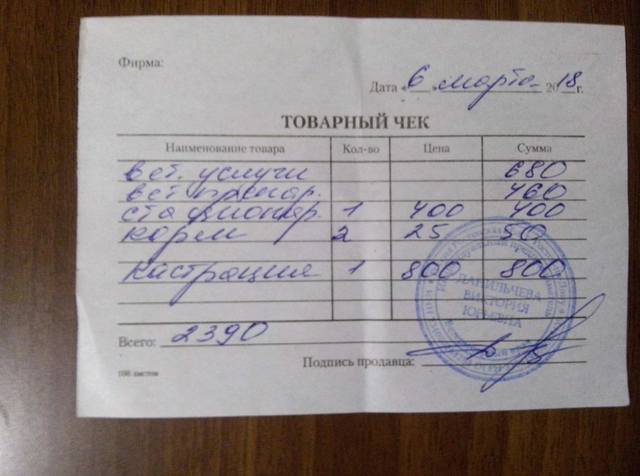 Фирма:
Дата «6» марта 2018 г.
ТОВАРНЫЙ ЧЕК
Наименование товара Кол-во Цена Сумма
вет. услуги 680
вет. препар. 460
стационар. 1 400 400
корм 2 25 50
кастрация 1 800 800
Всего: 2390
Подпись продавца:
100 листов
ДАНИЛЬЧЕВА
ВИКТОРИЯ
ЮРЬЕВНА